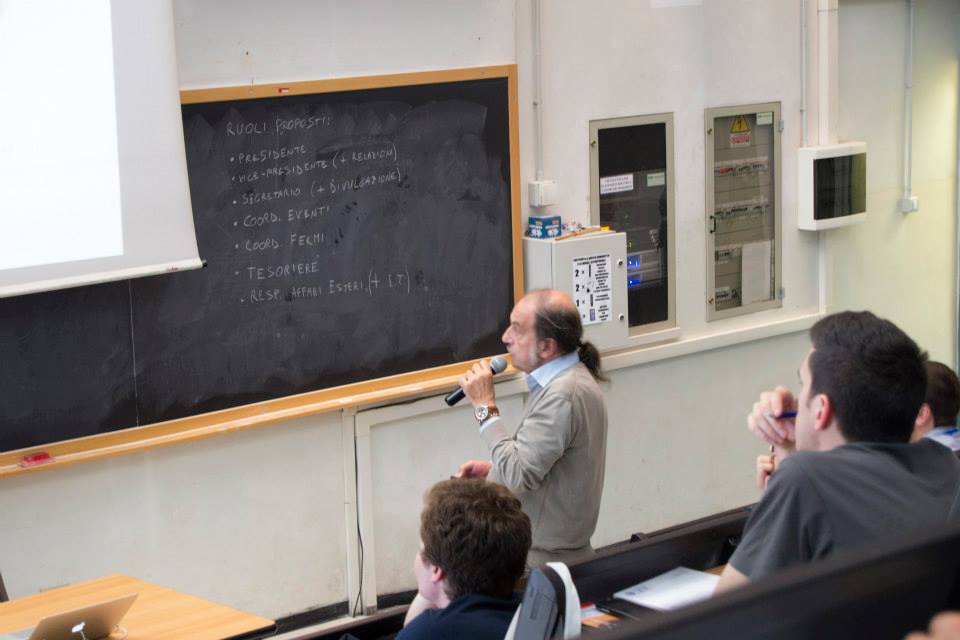 RUOLI PROPOSTI:
• PRESIDENTE
• VICE-PRESIDENTE (+ RELAZIONI)
• SEGRETARIO (+ DIVULGAZIONE)
• COORD. EVENTI
• COORD. FERMI
• TESORIERE
• RESP. AFFARI ESTERI (+ I.T.)
2 x
2 x
1 x